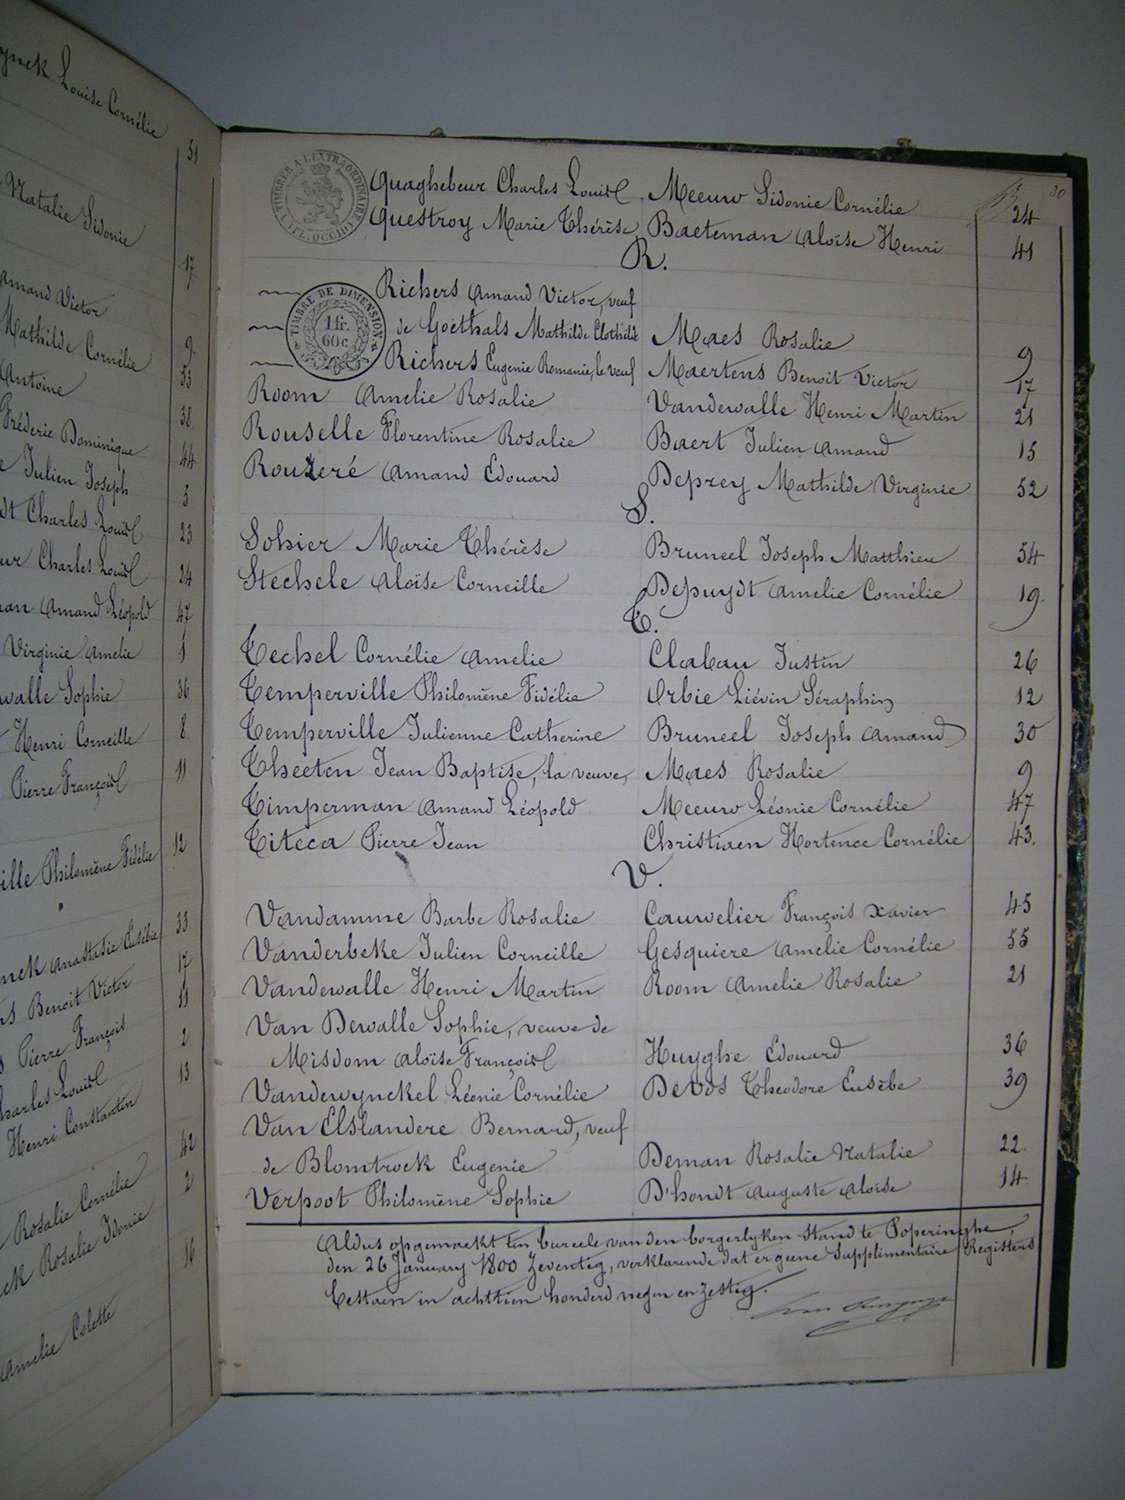 ynck Louise Cornélie 51
Natalie Sidonie 17
Amand Victor 9
Mathilde Cornélie 53
Antoine 38
Fréderic Dominique 44
Julien Joseph 5
dt Charles Louis 23
ur Charles Louis 24
man Amand Léopold 47
Virginie Amelie 1
walle Sophie 36
Henri Corneille 8
Pierre François 11
ille Philomène Fidélie 12
nck Anastasie Eusébie 33
ns Benoit Victor 17
s Pierre François 11
Charles Louis 2
Henri Constantin 13
42
Rosalie Cornélie 2
ck Rosalie Idonie 16
Amelie Colette
TIMBRER A L'EXTRAORDINAIRE
FL. OCCID.
30
Quaghebeur Charles Louis Meeuw Sidonie Cornélie 24
Questroy Marie Thérèse Baeteman Aloïse Henri 41
R.
TIMBRE DE DIMENSION
1 fr.
60 c
Richers Amand Victor, veuf
de Goethals Mathilde Clothilde Maes Rosalie 9
Richers Eugenie Romanie, le veuf Maertens Benoit Victor 17
Room Amelie Rosalie Vandewalle Henri Martin 21
Rouselle Florentine Rosalie Baert Julien Amand 15
Rouzeré Amand Edouard Deprey Mathilde Virginie 52
S.
Sohier Marie Thérèse Bruneel Joseph Matthieu 54
Stechele Aloïse Corneille Depuydt Amelie Cornélie 19.
T.
Techel Cornélie Amelie Clabau Justin 26
Temperville Philomène Fidélie Orbie Liévin Séraphin 12
Temperville Julienne Catherine Bruneel Joseph Amand 30
Theeten Jean Baptise, la veuve, Maes Rosalie 9
Timperman Amand Léopold Meeuw Léonie Cornélie 47
Titeca Pierre Jean Christiaen Hortence Cornélie 43.
V.
Vandamme Barbe Rosalie Cauwelier François Xavier 45
Vanderbeke Julien Corneille Gesquiere Amelie Cornélie 55
Vandewalle Henri Martin Room Amelie Rosalie 21
Van Dewalle Sophie, veuve de
Misdom Aloïse François Huyghe Edouard 36
Vandewynckel Léonie Cornélie Devos Théodore Eusèbe 39
Van Elslandere Bernard, veuf
de Blomtrock Eugenie Deman Rosalie Natalie 22.
Verpoot Philomène Sophie D'hondt Auguste Aloïse 14.
Aldus opgemaekt ten bureele van den borgerlyken stand te Poperinghe,
den 26 January 1800 zeventig, verklarende dat er geene Supplimentaire Registers
bestaen in achttien honderd negen en zestig.